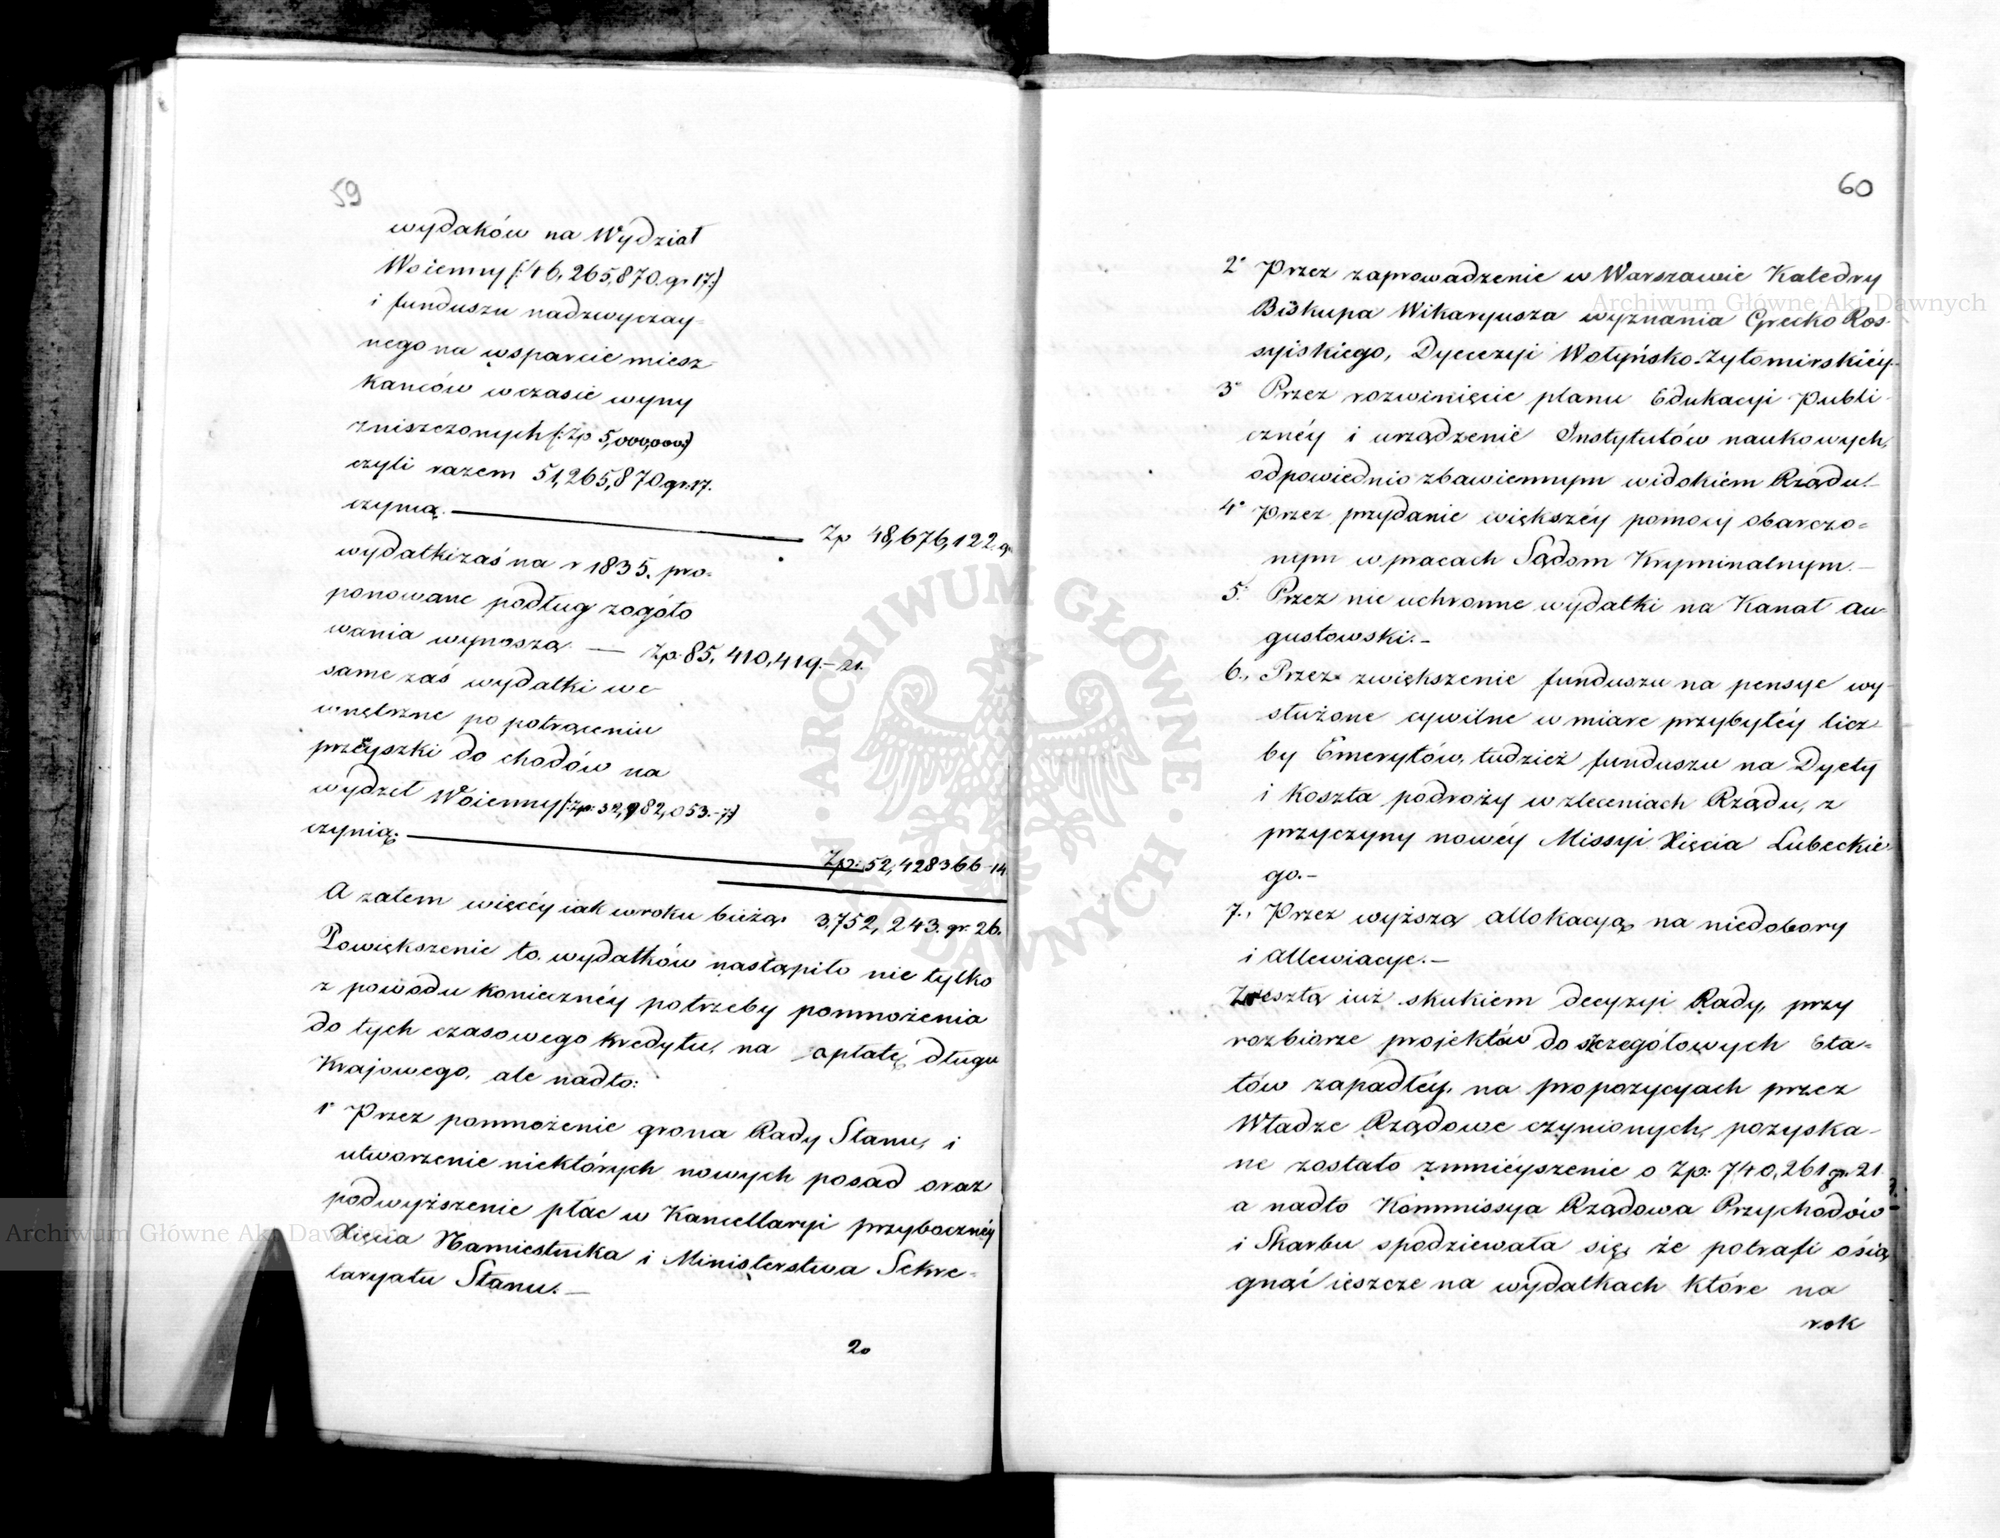 59
wydaków na Wydział
Woienny (: 46,265,870. gr 17:)
i funduszu nadzwyczay-
nego na wsparcie miesz-
kańców w czasie wyny
zniszczonych (: Zp 5,000,000:)
czyli razem 51,265,870 gr. 17.
czynią. — Zp 48,676,122. gr
wydatki zaś na r 1835. pro-
ponowane podług zogóło
wania wynoszą — Zp. 85,410,419.- 21.
same zaś wydatki we-
wnętrzne po potrąceniu
przewyszki do chodów na
wydzeł Woienny (: Zp: 32,982,053.-7:)
czynią: — Zp: 52,428366-14
A zatem więcéy iak w roku bieżą. 3,752,243. gr. 26.
Powiększenie to wydatków nastąpiło nie tylko
z powodu koniecznéy potrzeby pomnożenia
do tych czasowego kredytu, na opłatę długu
Krajowego, ale nadto:
1° Przez pomnożenie grona Rady Stanu, i
utworzenie niektórych nowych posad oraz
podwyższenie płac w Kancellaryi przybocznéy
Xięcia Namiestnika i Ministerstwa Sekre-
taryatu Stanu. —
2o
60
2° Przez zaprowadzenie w Warszawie Katedry
Biskupa Wikaryusza wyznania Grecko Ros-
syiskiego, Dyecezyi Wołyńsko-Żytomirskiéy.
3° Przez rozwinięcie planu Edukacyi Publi-
cznéy i urządzenie Instytutów naukowych,
odpowiednio zbawiennym widokiem Rządu. —
4° Przez przydanie większéy pomocy obarczo-
nym w pracach Sądom Kryminalnym. —
5. Przez nie uchronne wydatki na Kanał au-
gustowski. —
6., Przez zwiększenie funduszu na pensye wy-
służone cywilne w miare przybyłéy licz-
by Emerytów, tudzież funduszu na Dyety
i koszta podroży w zleceniach Rządu, z
przyczyny nowéy Missyi Xięcia Lubeckie-
go. —
7., Przez wyższą allokacyą na niedobory
i allewiacye. —
Zresztą iuż skukiem decyzyi Rady, przy
rozbiorze projektów do szczegółowych Eta-
tów zapadłéy, na propozycyach przez
Władze Rządowe czynionych, pozyska-
ne zostało zmniéyszenie o Zp. 740,261 gr. 21.
a nadto Kommissya Rządowa Przychodów
i Skarbu spodziewała się, że potrafi osią
gnąć ieszcze na wydatkach które na
rok
Archiwum Główne Akt Dawnych
Archiwum Główne Akt Dawnych
ARCHIWUM GŁÓWNE AKT DAWNYCH